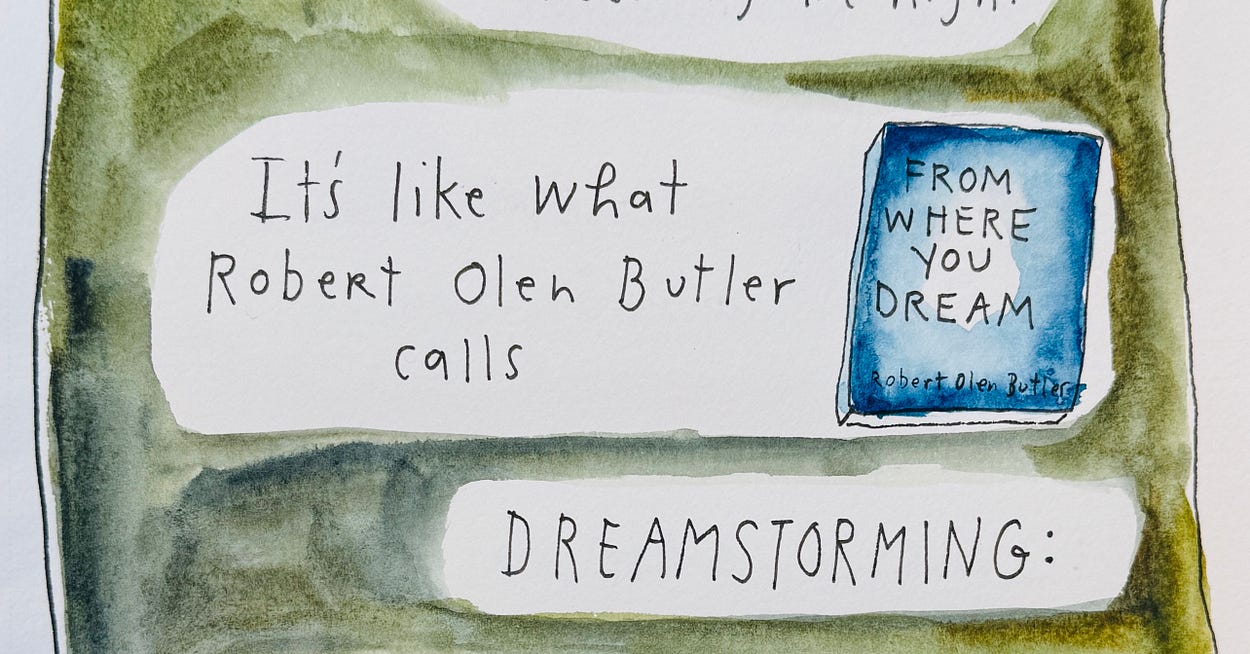 It's like what
Robert Olen Butler
calls
FROM
WHERE
YOU
DREAM
Robert Olen Butler
DREAMSTORMING: